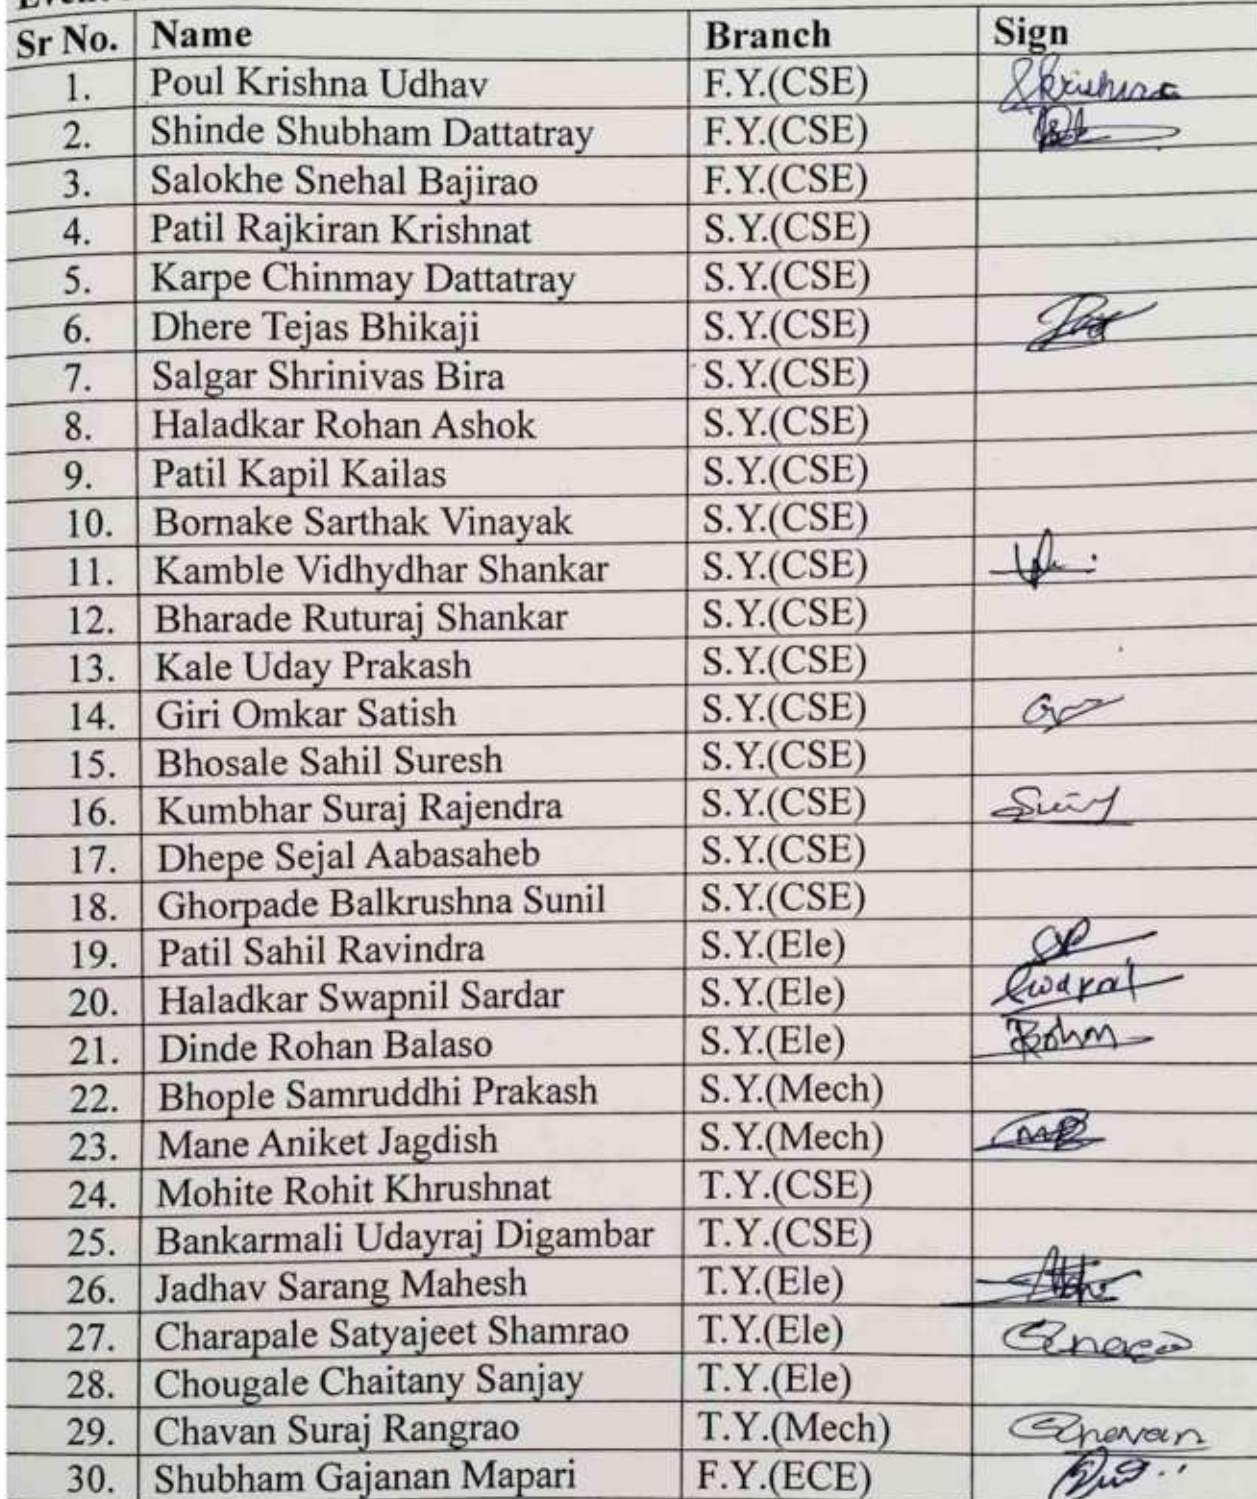 Sr No. Name Branch Sign
1. Poul Krishna Udhav F.Y.(CSE) Krishna
2. Shinde Shubham Dattatray F.Y.(CSE)
3. Salokhe Snehal Bajirao F.Y.(CSE)
4. Patil Rajkiran Krishnat S.Y.(CSE)
5. Karpe Chinmay Dattatray S.Y.(CSE)
6. Dhere Tejas Bhikaji S.Y.(CSE)
7. Salgar Shrinivas Bira S.Y.(CSE)
8. Haladkar Rohan Ashok S.Y.(CSE)
9. Patil Kapil Kailas S.Y.(CSE)
10. Bornake Sarthak Vinayak S.Y.(CSE)
11. Kamble Vidhydhar Shankar S.Y.(CSE)
12. Bharade Ruturaj Shankar S.Y.(CSE)
13. Kale Uday Prakash S.Y.(CSE)
14. Giri Omkar Satish S.Y.(CSE)
15. Bhosale Sahil Suresh S.Y.(CSE)
16. Kumbhar Suraj Rajendra S.Y.(CSE)
17. Dhepe Sejal Aabasaheb S.Y.(CSE)
18. Ghorpade Balkrushna Sunil S.Y.(CSE)
19. Patil Sahil Ravindra S.Y.(Ele)
20. Haladkar Swapnil Sardar S.Y.(Ele)
21. Dinde Rohan Balaso S.Y.(Ele)
22. Bhople Samruddhi Prakash S.Y.(Mech)
23. Mane Aniket Jagdish S.Y.(Mech)
24. Mohite Rohit Khrushnat T.Y.(CSE)
25. Bankarmali Udayraj Digambar T.Y.(CSE)
26. Jadhav Sarang Mahesh T.Y.(Ele)
27. Charapale Satyajeet Shamrao T.Y.(Ele)
28. Chougale Chaitany Sanjay T.Y.(Ele)
29. Chavan Suraj Rangrao T.Y.(Mech) Chavan
30. Shubham Gajanan Mapari F.Y.(ECE)